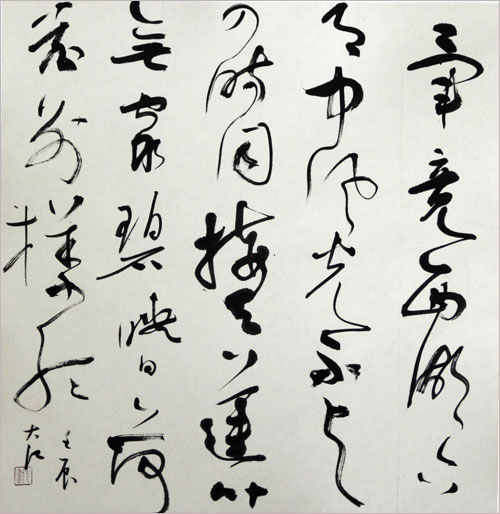 畢竟西湖六
月中風光不與
四時同接天蓮叶
無窮碧映日荷
花別樣紅
壬辰
大江